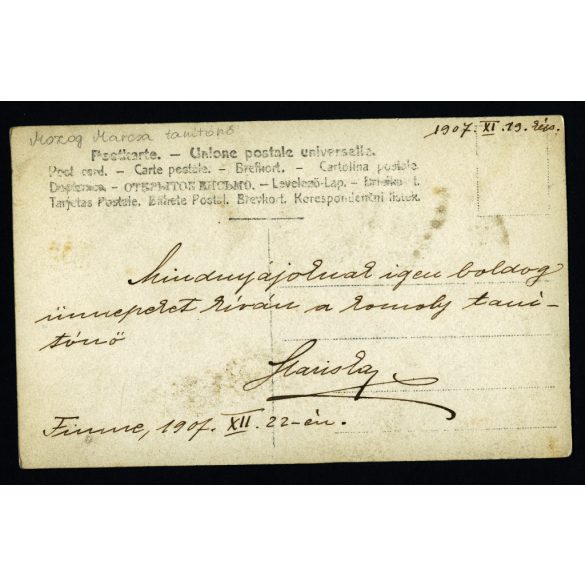 Mozog Marcsa tanítónő
1907. XI. 19.
Postkarte. – Unione postale universelle.
Post card. – Carte postale. – Brefkort. – Cartolina postale
Dopisnica – ОТКРЫТОЕ ПИСЬМО. – Levelező-Lap.
Tarjetas Postale. Bilhete Postal. Brevkort. Korespondencni listek.
Mindnyájoknak igen boldog
ünnepeket kíván a komoly taní-
tónő
Mariska
Fiume, 1907. XII. 22-én.